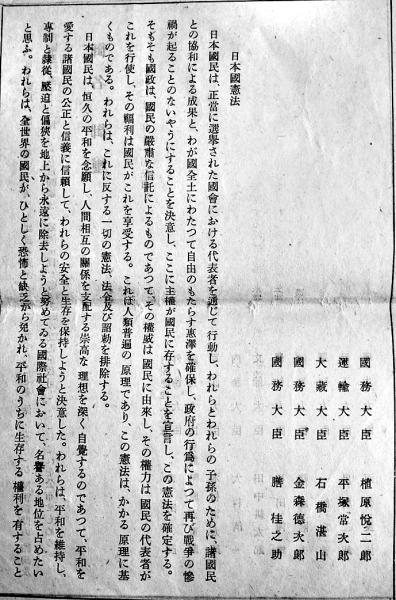 國務大臣 植原悅二郎
運輸大臣 平塚常次郎
大藏大臣 石橋湛山
國務大臣 金森德次郎
國務大臣 膳桂之助
日本國憲法
日本國民は、正當に選擧された國會における代表者を通じて行動し、われらとわれらの子孫のために、諸國民
との協和による成果と、わが國全土にわたつて自由のもたらす惠澤を確保し、政府の行爲によつて再び戰爭の慘
禍が起ることのないやうにすることを決意し、ここに主權が國民に存することを宣言し、この憲法を確定する。
そもそも國政は、國民の嚴肅な信託によるものであつて、その權威は國民に由來し、その權力は國民の代表者が
これを行使し、その福利は國民がこれを享受する。これは人類普遍の原理であり、この憲法は、かかる原理に基
くものである。われらは、これに反する一切の憲法、法令及び詔勅を排除する。
日本國民は、恒久の平和を念願し、人間相互の關係を支配する崇高な理想を深く自覺するのであつて、平和を
愛する諸國民の公正と信義に信賴して、われらの安全と生存を保持しようと決意した。われらは、平和を維持し、
專制と隸從、壓迫と偏狹を地上から永遠に除去しようと努めてゐる國際社會において、名譽ある地位を占めたい
と思ふ。われらは、全世界の國民が、ひとしく恐怖と缺乏から免かれ、平和のうちに生存する權利を有すること